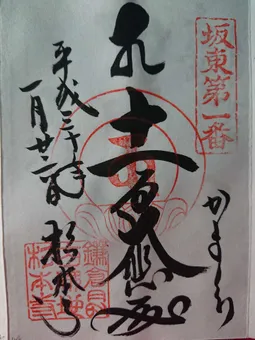 坂東第一番
かまくら
十一面大悲殿
平成三十年
一月廿二日
杉本寺
杉本寺